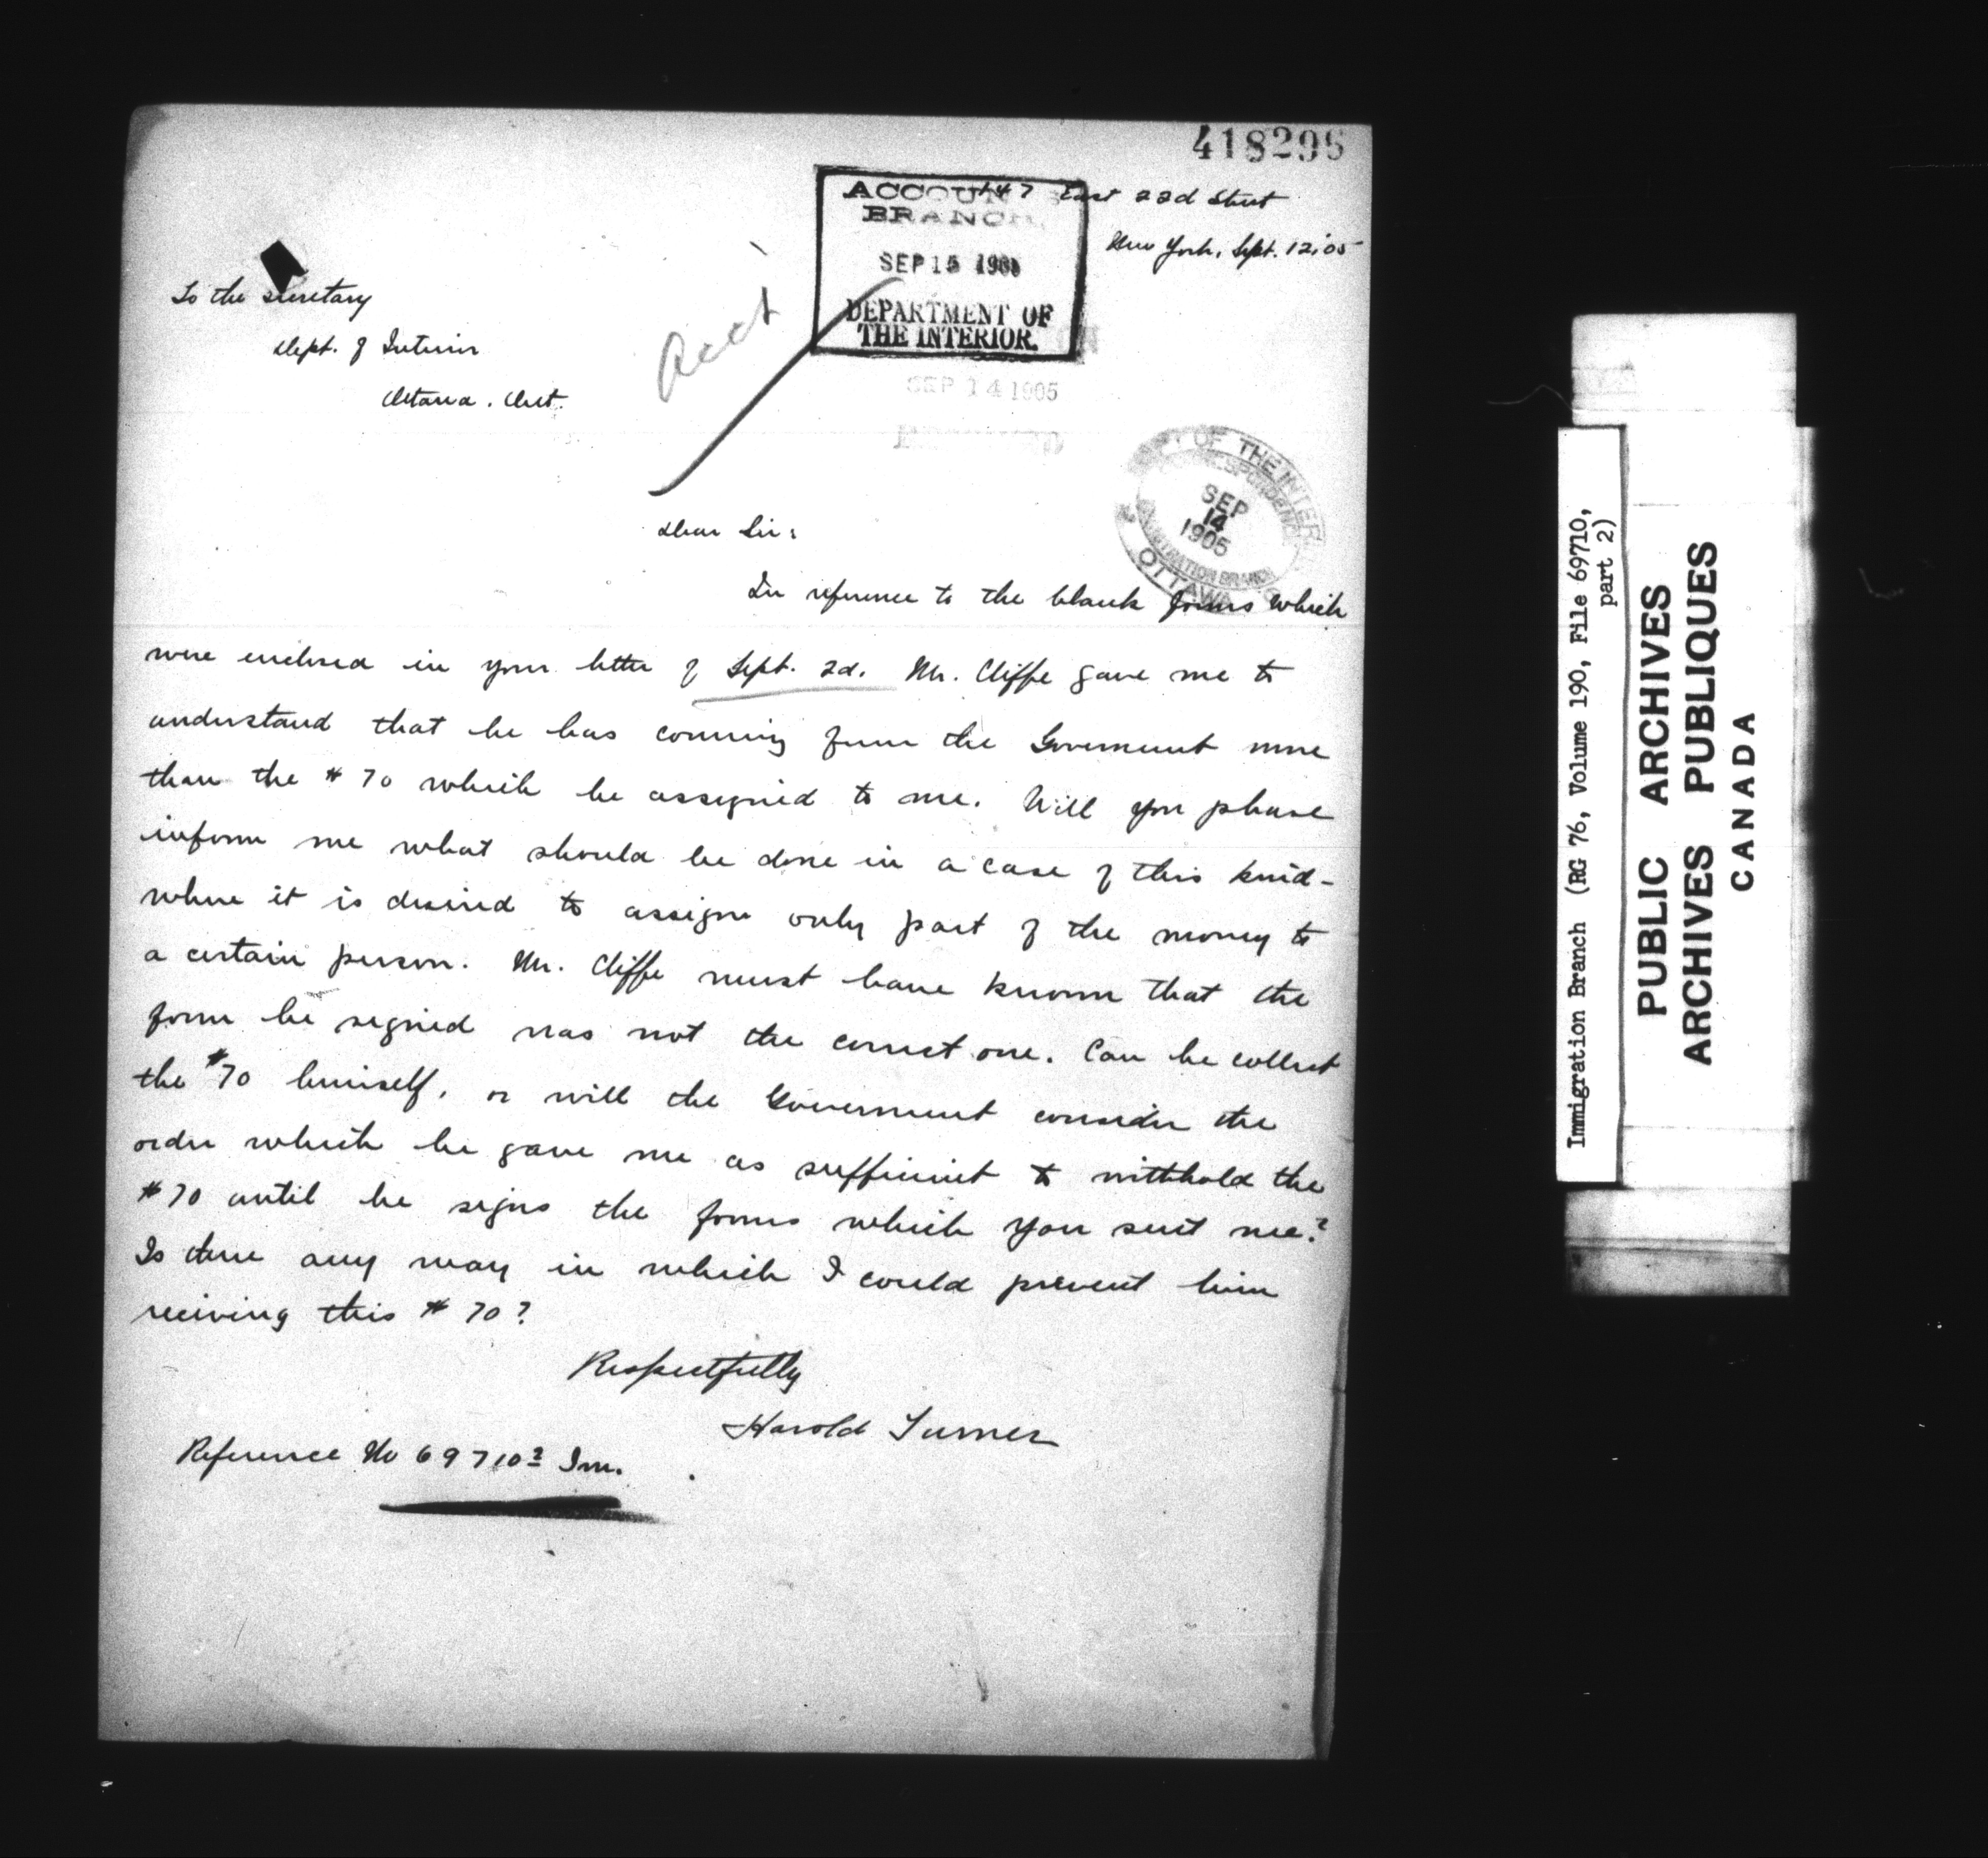 418298
147 East 22d Street
New York, Sept. 12, '05
ACCOUNTS
BRANCH
SEP 15 1905
DEPARTMENT OF
THE INTERIOR.
SEP 14 1905
To the Secretary
Dept. of Interior
Ottawa. Ont.
Acct
DEPT OF THE INTERIOR
CORRESPONDENCE
SEP
14
1905
IMMIGRATION BRANCH
OTTAWA
Dear Sir:
In reference to the blank forms which
were enclosed in your letter of Sept. 2d. Mr. Cliffe gave me to
understand that he has coming from the Government more
than the $70 which he assigned to me. Will you please
inform me what should be done in a case of this kind -
where it is desired to assign only part of the money to
a certain person. Mr. Cliffe must have known that the
form he signed was not the correct one. Can he collect
the $70 himself, or will the Government consider the
order which he gave me as sufficient to withhold the
$70 until he signs the forms which you sent me?
Is there any way in which I could prevent him
reciving this $70?
Respectfully
Harold Turner
Reference No 69710² Im.
Immigration Branch (RG 76, Volume 190, File 69710,
part 2)
PUBLIC ARCHIVES
ARCHIVES PUBLIQUES
CANADA